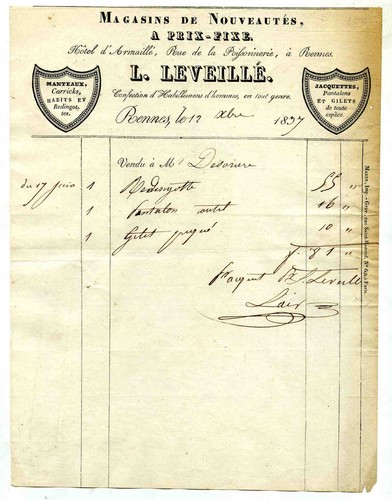 MAGASINS DE NOUVEAUTÉS,
A PRIX-FIXE.
Hôtel d'Armaillé, Rue de la Poissonnerie, à Rennes.
L. LEVEILLÉ.
Confection d'Habillemens d'hommes, en tout genre.
MANTEAUX,
Carricks,
HABITS ET
Redingotes.
JAQUETTES,
Pantalons
ET GILETS
de toute
espèce.
Rennes, le 12 Xbre 1837
Vendu à M
du 17 juin 1 Redingotte 55 "
1 Pantalon 16 "
1 Gilet piqué 10 "
f. 81 "
pr acquit Leveillé